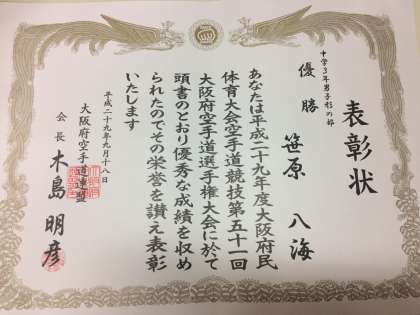 表彰状
中学3年男子形の部
優勝
笹原 八海
あなたは平成二十九年度大阪府民
体育大会空手道競技第五十一回
大阪府空手道選手権大会に於て
頭書のとおり優秀な成績を収め
られたのでその栄誉を讃え表彰
いたします
平成二十九年九月十八日
大阪府空手道連盟
会長 木島明彦